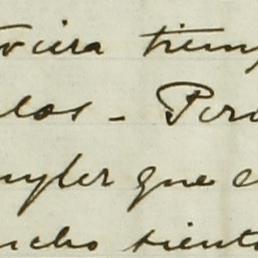 tuviera tiemp
los - Pero
uyler que e
ucho siento